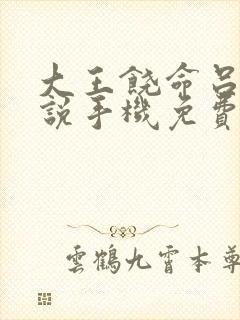 大王饒命呂
說手機免費
雲鶴九霄本尊